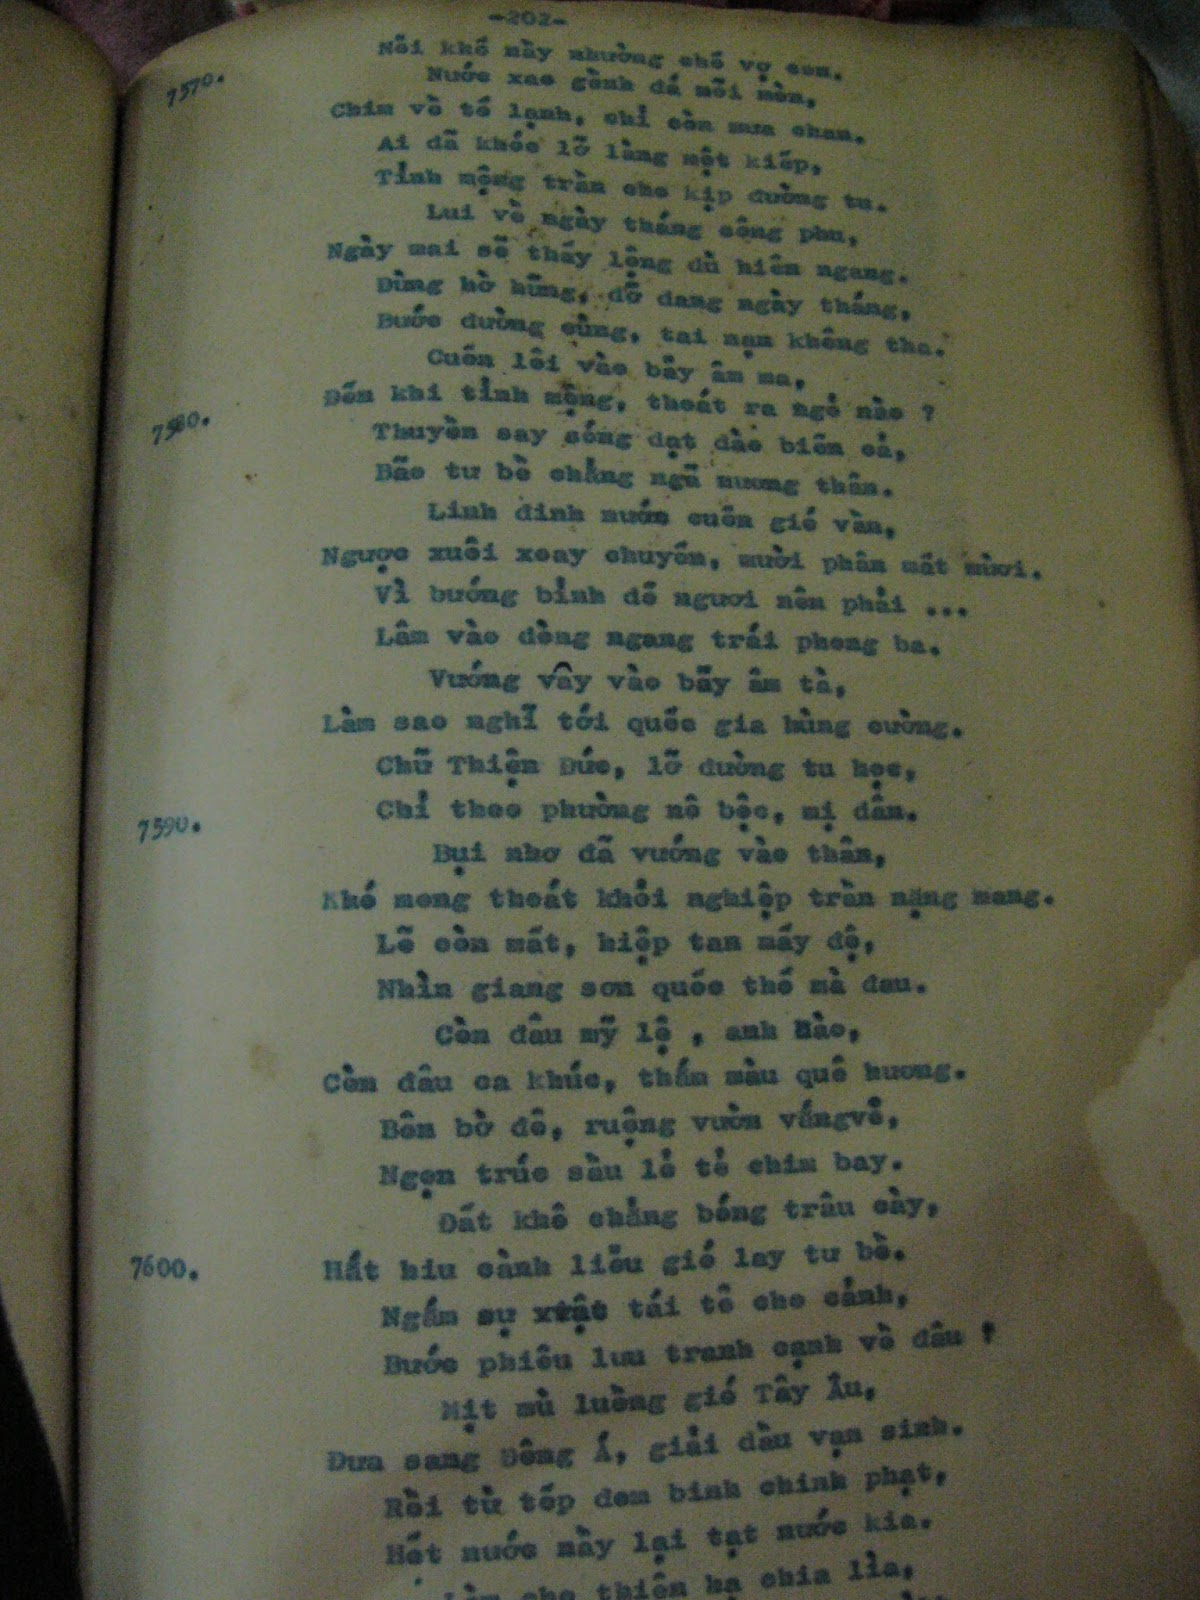 -202-
Nỗi khổ nầy nhường chỗ vợ con.
7570. Nước xao gềnh đá mõi mòn,
Chim về tổ lạnh, chỉ còn mưa chan.
Ai đã khóc lỡ làng một kiếp,
Tỉnh mộng trần cho kịp đường tu.
Lui về ngày tháng công phu,
Ngày mai sẽ thấy lộng dù hiên ngang.
Đừng hờ hững, dỡ dang ngày tháng,
Bước đường cùng, tai nạn không tha.
Cuốn lôi vào bẫy âm ma,
Đến khi tỉnh mộng, thoát ra ngỏ nào ?
7580. Thuyền say sóng dạt dào biển cả,
Bão tư bề chẳng ngã nương thân.
Linh đinh nước cuốn gió vần,
Ngược xuôi xoay chuyển, mười phân mất mười.
Vì bướng bỉnh để ngươi nên phải ...
Lâm vào dòng ngang trái phong ba.
Vướng vây vào bẫy âm tà,
Làm sao nghĩ tới quốc gia hùng cường.
Chữ Thiện Đức, lỡ đường tu học,
Chỉ theo phường nô bộc, mị dân.
7590. Bụi nhơ đã vướng vào thân,
Khó mong thoát khỏi nghiệp trần nặng mang.
Lẽ còn mất, hiệp tan mấy độ,
Nhìn giang sơn quốc thổ mà đau.
Còn đâu mỹ lệ , anh hào,
Còn đâu ca khúc, thắm màu quê hương.
Bên bờ đê, ruộng vườn vắngvẻ,
Ngọn trúc sầu lẻ tẻ chim bay.
Đất khô chẳng bóng trâu cày,
7600. Hắt hiu cành liễu gió lay tư bề.
Ngắm sự vật tái tê cho cảnh,
Bước phiêu lưu tranh cạnh về đâu ?
Mịt mù luồng gió Tây Âu,
Đưa sang Đông Á, giải dầu vạn sinh.
Rồi từ tốp đem binh chinh phạt,
Hết nước nầy lại tạt nước kia.
Làm cho thiên hạ chia lìa,